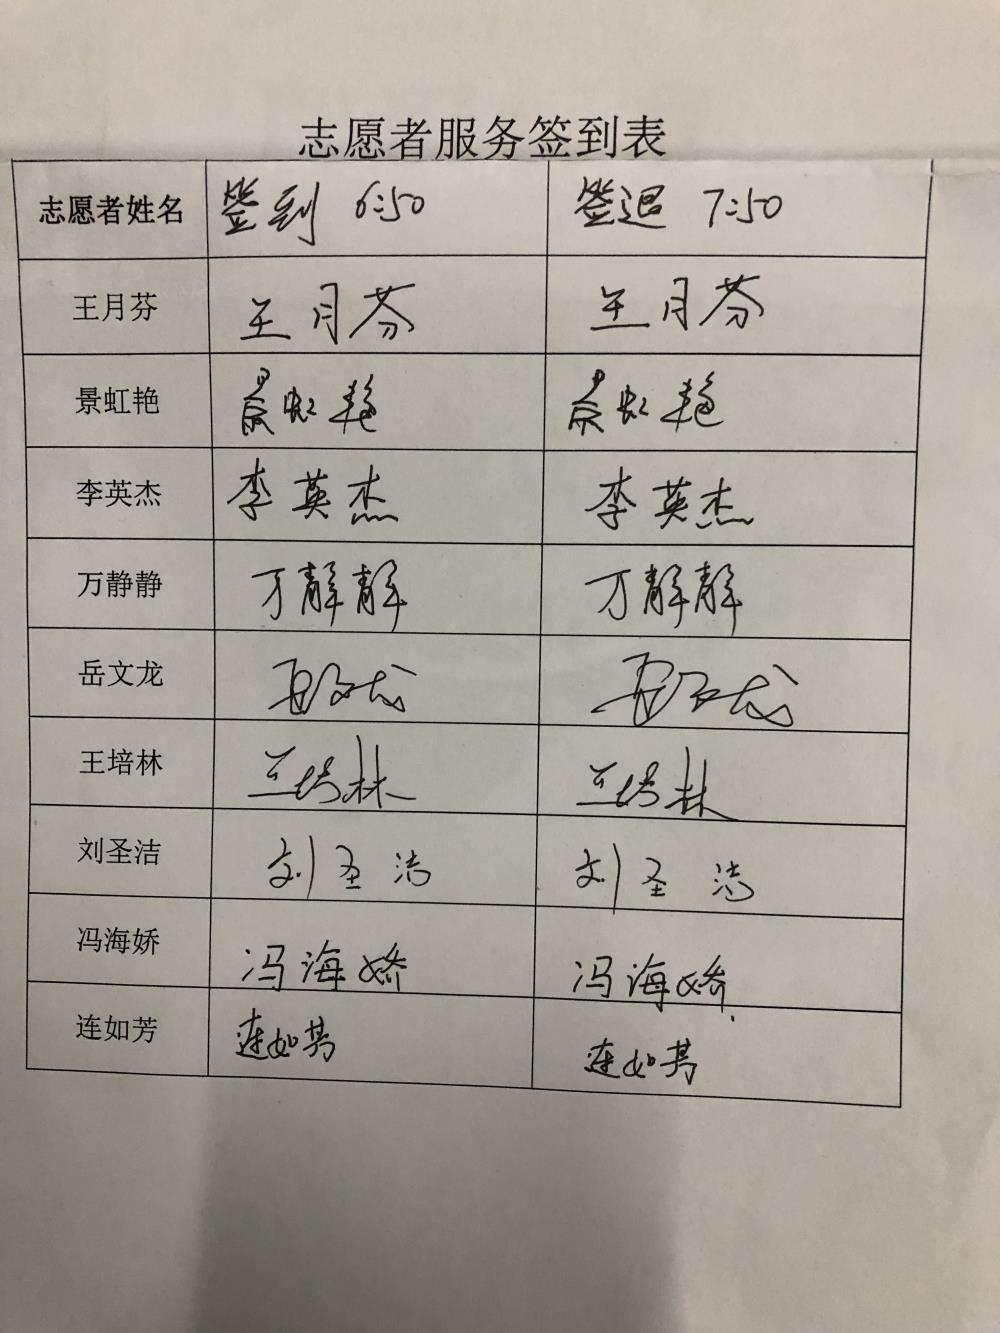 志愿者服务签到表
志愿者姓名 签到 6:50 签退 7:50
王月芬 王月芬 王月芬
景虹艳 景虹艳 景虹艳
李英杰 李英杰 李英杰
万静静 万静静 万静静
岳文龙 岳文龙 岳文龙
王培林 王培林 王培林
刘圣洁 刘圣洁 刘圣洁
冯海娇 冯海娇 冯海娇
连如芳 连如芳 连如芳